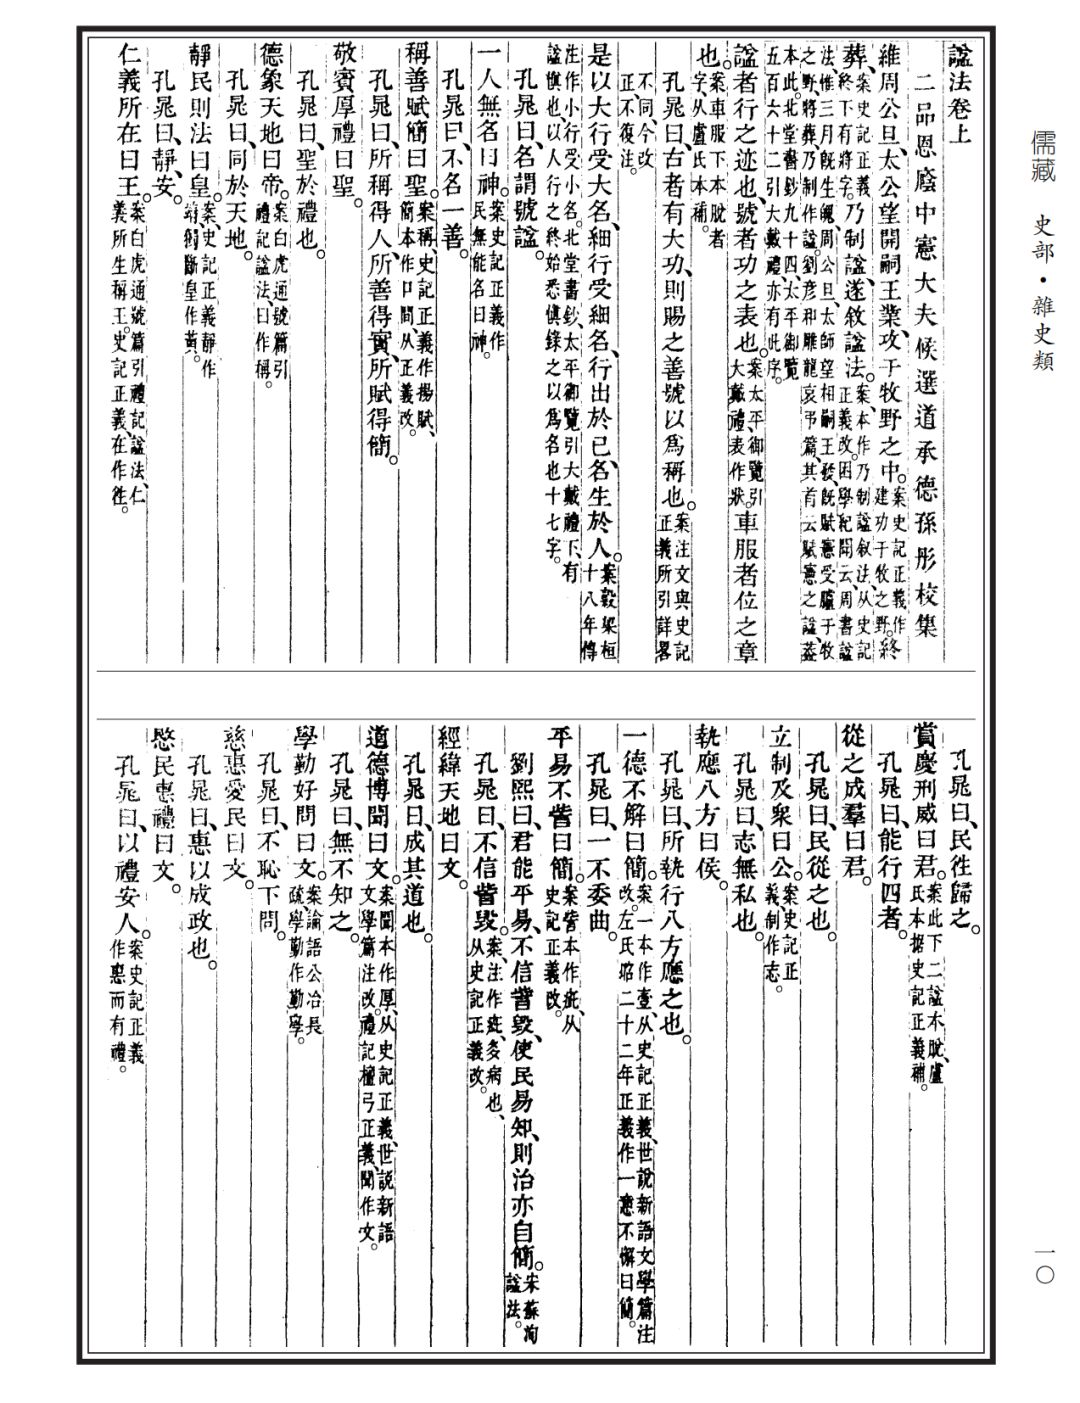 儒藏 史部·雜史類
諡法卷上
二品恩廕中憲大夫候選道承德孫彤校集
維周公旦、太公望開嗣王業、攻于牧野之中。案史記正義作建功于牧之野。終
葬、案史記正義終下有將字。乃制諡、遂敘諡法。案、本作乃制諡敘法、从史記正義改。困學紀聞云、周書諡
法惟三月既生魄、周公旦、太師望相嗣王發、既賦憲受臚于牧之野、將葬、乃制作諡。劉彥和雕龍哀弔篇、其首云賦憲之諡、蓋
本此。北堂書鈔九十四、太平御覽五百六十二引大戴禮、亦有此序。
諡者行之迹也、號者功之表也。案太平御覽引大戴禮、表作狀。車服者位之章
也。案車服下本脫者字、从盧氏本補。
孔晁曰、古者有大功、則賜之善號以為稱也。案注文與史記正義所引詳畧
不同、今改正、不復注。
是以大行受大名、細行受細名、行出於己、名生於人。案、穀梁桓十八年傳
注作小行受小名。北堂書鈔、太平御覽引大戴禮下、有諡慎也、以人行之終始悉慎錄之以為名也十七字。
孔晁曰、名謂號諡。
一人無名曰神。案史記正義作民無能名曰神。
孔晁曰、不名一善。
稱善賦簡曰聖。案稱、史記正義作揚賦、簡本作口間、从正義改。
孔晁曰、所稱得人、所善得實、所賦得簡。
敬賓厚禮曰聖。
孔晁曰、聖於禮也。
德象天地曰帝。案白虎通號篇引禮記諡法、曰作稱。
孔晁曰、同於天地。
靜民則法曰皇。案、史記正義靜作靖、獨斷皇作黃。
孔晁曰、靜、安。
仁義所在曰王。案白虎通號篇引禮記諡法、仁義所生稱王。史記正義在作往。
孔晁曰、民徃歸之。
賞慶刑威曰君。案此下二諡本脫、盧氏本據史記正義補。
孔晁曰、能行四者。
從之成羣曰君。
孔晁曰、民從之也。
立制及衆曰公。案史記正義、制作志。
孔晁曰、志無私也。
執應八方曰侯。
孔晁曰、所執行八方應之也。
一德不解曰簡。案一本作壹、从史記正義、世說新語文學篇注改。左氏昭二十二年正義作一意不懈曰簡。
孔晁曰、一不委曲。
平易不訾曰簡。案訾本作疵、从史記正義改。
劉熙曰、君能平易、不信訾毀、使民易知、則治亦自簡。宋蘇洵諡法。
孔晁曰、不信訾毀。案、注作疵多病也、从史記正義改。
經緯天地曰文。
孔晁曰、成其道也。
道德博聞曰文。案聞本作厚、从史記正義、世說新語文學篇注改。禮記檀弓正義、聞作文。
孔晁曰、無不知之。
學勤好問曰文。案論語公冶長疏、學勤作勤學。
孔晁曰、不恥下問。
慈惠愛民曰文。
孔晁曰、惠以成政也。
愍民惠禮曰文。
孔晁曰、以禮安人。案史記正義作惠而有禮。
一〇